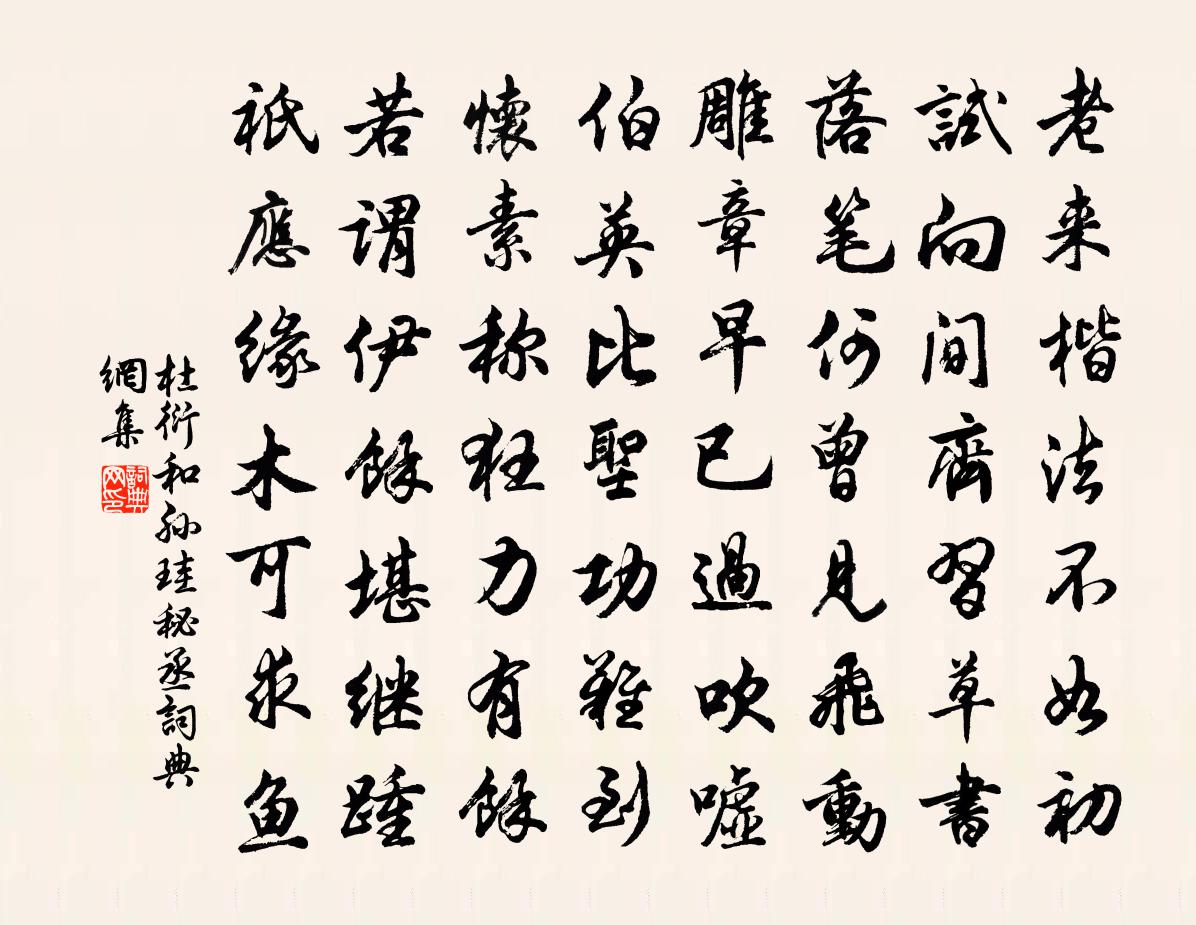 老来楷法不如初
試向閒齋習草書
落笔何曾見飛動
雕章早已過吹嘘
伯英比聖功難到
懷素称狂力有餘
若謂伊餘堪継踵
祇應緣木可求鱼
杜衍和孙珪秘丞詞典
網集
詞典
网印